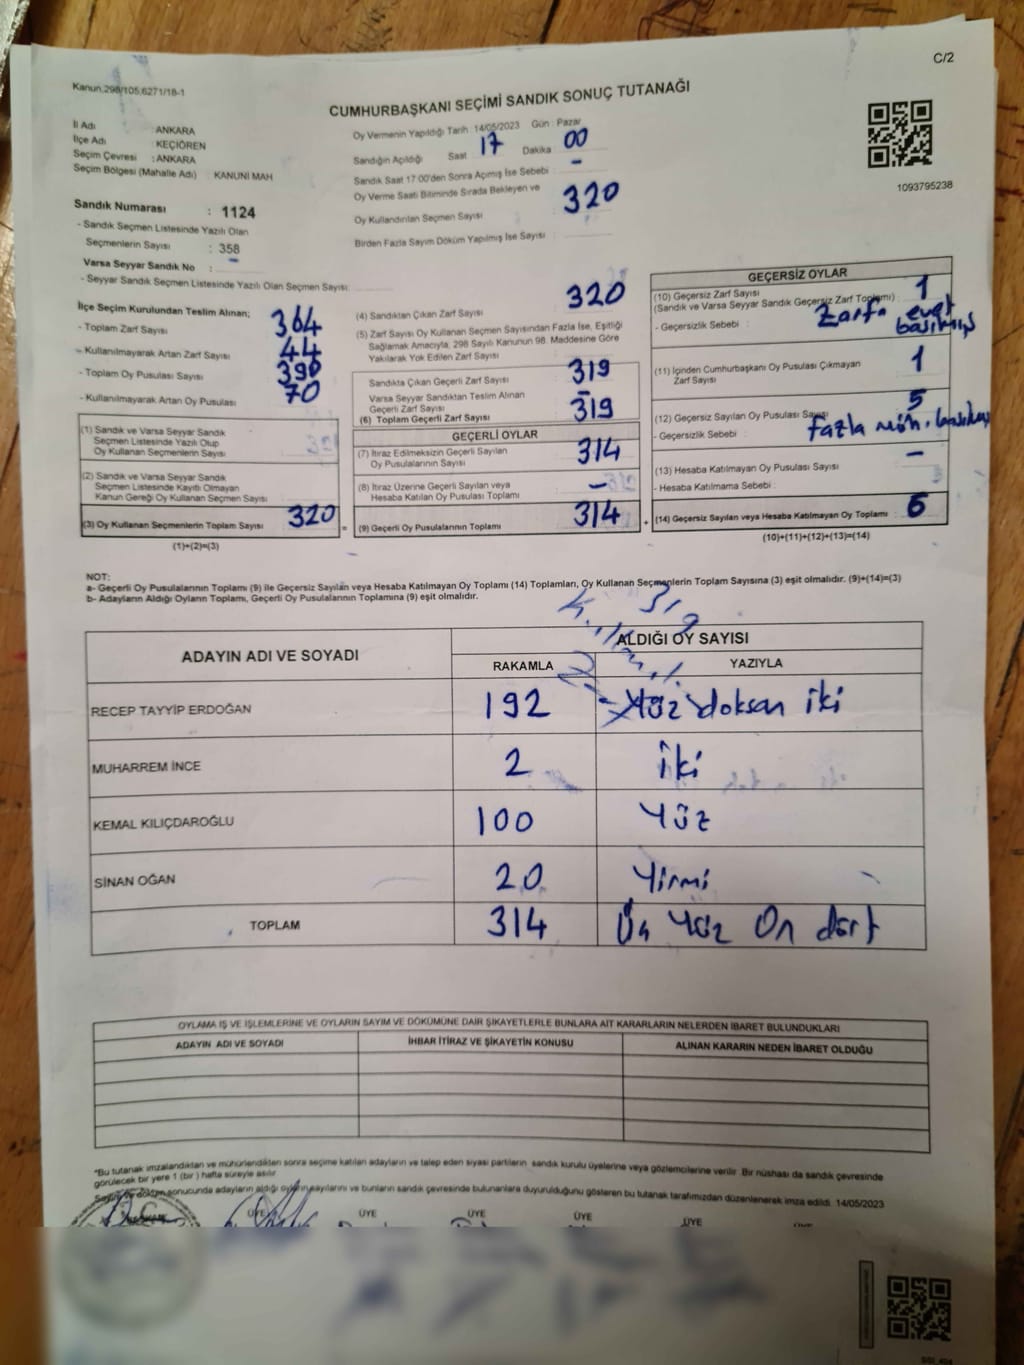 C/2
Kanun.298/105,6271/18-1
CUMHURBAŞKANI SEÇİMİ SANDIK SONUÇ TUTANAĞI
İl Adı : ANKARA
İlçe Adı : KEÇİÖREN
Seçim Çevresi : ANKARA
Seçim Bölgesi (Mahalle Adı) : KANUNİ MAH
Oy Vermenin Yapıldığı Tarih : 14/05/2023 Gün : Pazar
Sandığın Açıldığı Saat 17 Dakika 00
Sandık Saat 17:00'den Sonra Açımış İse Sebebi : -
Oy Verme Saati Bitiminde Sırada Bekleyen ve
Oy Kullandırılan Seçmen Sayısı : 320
Birden Fazla Sayım Döküm Yapılmış İse Sayısı :
1093795238
Sandık Numarası : 1124
- Sandık Seçmen Listesinde Yazılı Olan
Seçmenlerin Sayısı : 358
Varsa Seyyar Sandık No : -
- Seyyar Sandık Seçmen Listesinde Yazılı Olan Seçmen Sayısı:
İlçe Seçim Kurulundan Teslim Alınan;
- Toplam Zarf Sayısı : 364
- Kullanılmayarak Artan Zarf Sayısı : 44
- Toplam Oy Pusulası Sayısı : 390
- Kullanılmayarak Artan Oy Pusulası : 70
(1) Sandık ve Varsa Seyyar Sandık
Seçmen Listesinde Yazılı Olup
Oy Kullanan Seçmenlerin Sayısı :
(2) Sandık ve Varsa Seyyar Sandık
Seçmen Listesinde Kayıtlı Olmayan
Kanun Gereği Oy Kullanan Seçmen Sayısı :
(3) Oy Kullanan Seçmenlerin Toplam Sayısı : 320 =
(1)+(2)=(3)
(4) Sandıktan Çıkan Zarf Sayısı : 320
(5) Zarf Sayısı Oy Kullanan Seçmen Sayısından Fazla İse, Eşitliği
Sağlamak Amacıyla, 298 Sayılı Kanunun 98. Maddesine Göre
Yakılarak Yok Edilen Zarf Sayısı :
Sandıkta Çıkan Geçerli Zarf Sayısı : 319
Varsa Seyyar Sandıktan Teslim Alınan
Geçerli Zarf Sayısı : -
(6) Toplam Geçerli Zarf Sayısı : 319
GEÇERLİ OYLAR
(7) İtiraz Edilmeksizin Geçerli Sayılan
Oy Pusulalarının Sayısı : 314
(8) İtiraz Üzerine Geçerli Sayılan veya
Hesaba Katılan Oy Pusulası Toplamı : -
(9) Geçerli Oy Pusulalarının Toplamı : 314 +
GEÇERSİZ OYLAR
(10) Geçersiz Zarf Sayısı
(Sandık ve Varsa Seyyar Sandık Geçersiz Zarf Toplamı) : 1
- Geçersizlik Sebebi : Zarfa evet
basılmış
(11) İçinden Cumhurbaşkanı Oy Pusulası Çıkmayan
Zarf Sayısı : 1
(12) Geçersiz Sayılan Oy Pusulası Sayısı : 5
- Geçersizlik Sebebi : fazla müh.
(13) Hesaba Katılmayan Oy Pusulası Sayısı : -
- Hesaba Katılmama Sebebi :
(14) Geçersiz Sayılan veya Hesaba Katılmayan Oy Toplamı : 6
(10)+(11)+(12)+(13)=(14)
NOT:
a- Geçerli Oy Pusulalarının Toplamı (9) ile Geçersiz Sayılan veya Hesaba Katılmayan Oy Toplamı (14) Toplamları, Oy Kullanan Seçmenlerin Toplam Sayısına (3) eşit olmalıdır. (9)+(14)=(3)
b- Adayların Aldığı Oyların Toplamı, Geçerli Oy Pusulalarının Toplamına (9) eşit olmalıdır.
319
ADAYIN ADI VE SOYADI ALDIĞI OY SAYISI
RAKAMLA YAZIYLA
RECEP TAYYİP ERDOĞAN 192 Yüz doksan iki
MUHARREM İNCE 2 iki
KEMAL KILIÇDAROĞLU 100 Yüz
SİNAN OĞAN 20 Yirmi
TOPLAM 314 Üç Yüz On dört
OYLAMA İŞ VE İŞLEMLERİNE VE OYLARIN SAYIM VE DÖKÜMÜNE DAİR ŞİKAYETLERLE BUNLARA AİT KARARLARIN NELERDEN İBARET BULUNDUKLARI
ADAYIN ADI VE SOYADI İHBAR İTİRAZ VE ŞİKAYETİN KONUSU ALINAN KARARIN NEDEN İBARET OLDUĞU
"Bu tutanak imzalandıktan ve mühürlendikten sonra seçime katılan adayların ve talep eden siyasi partilerin sandık kurulu üyelerine veya gözlemcilerine verilir. Bir nüshası da sandık çevresinde
görülecek bir yere 1 (bir) hafta süreyle asılır.
döküm sonucunda adayların aldığı oyların sayılarını ve bunların sandık çevresinde bulunanlara duyurulduğunu gösteren bu tutanak tarafımızdan düzenlenerek imza edildi. 14/05/2023
ÜYE ÜYE ÜYE ÜYE ÜYE